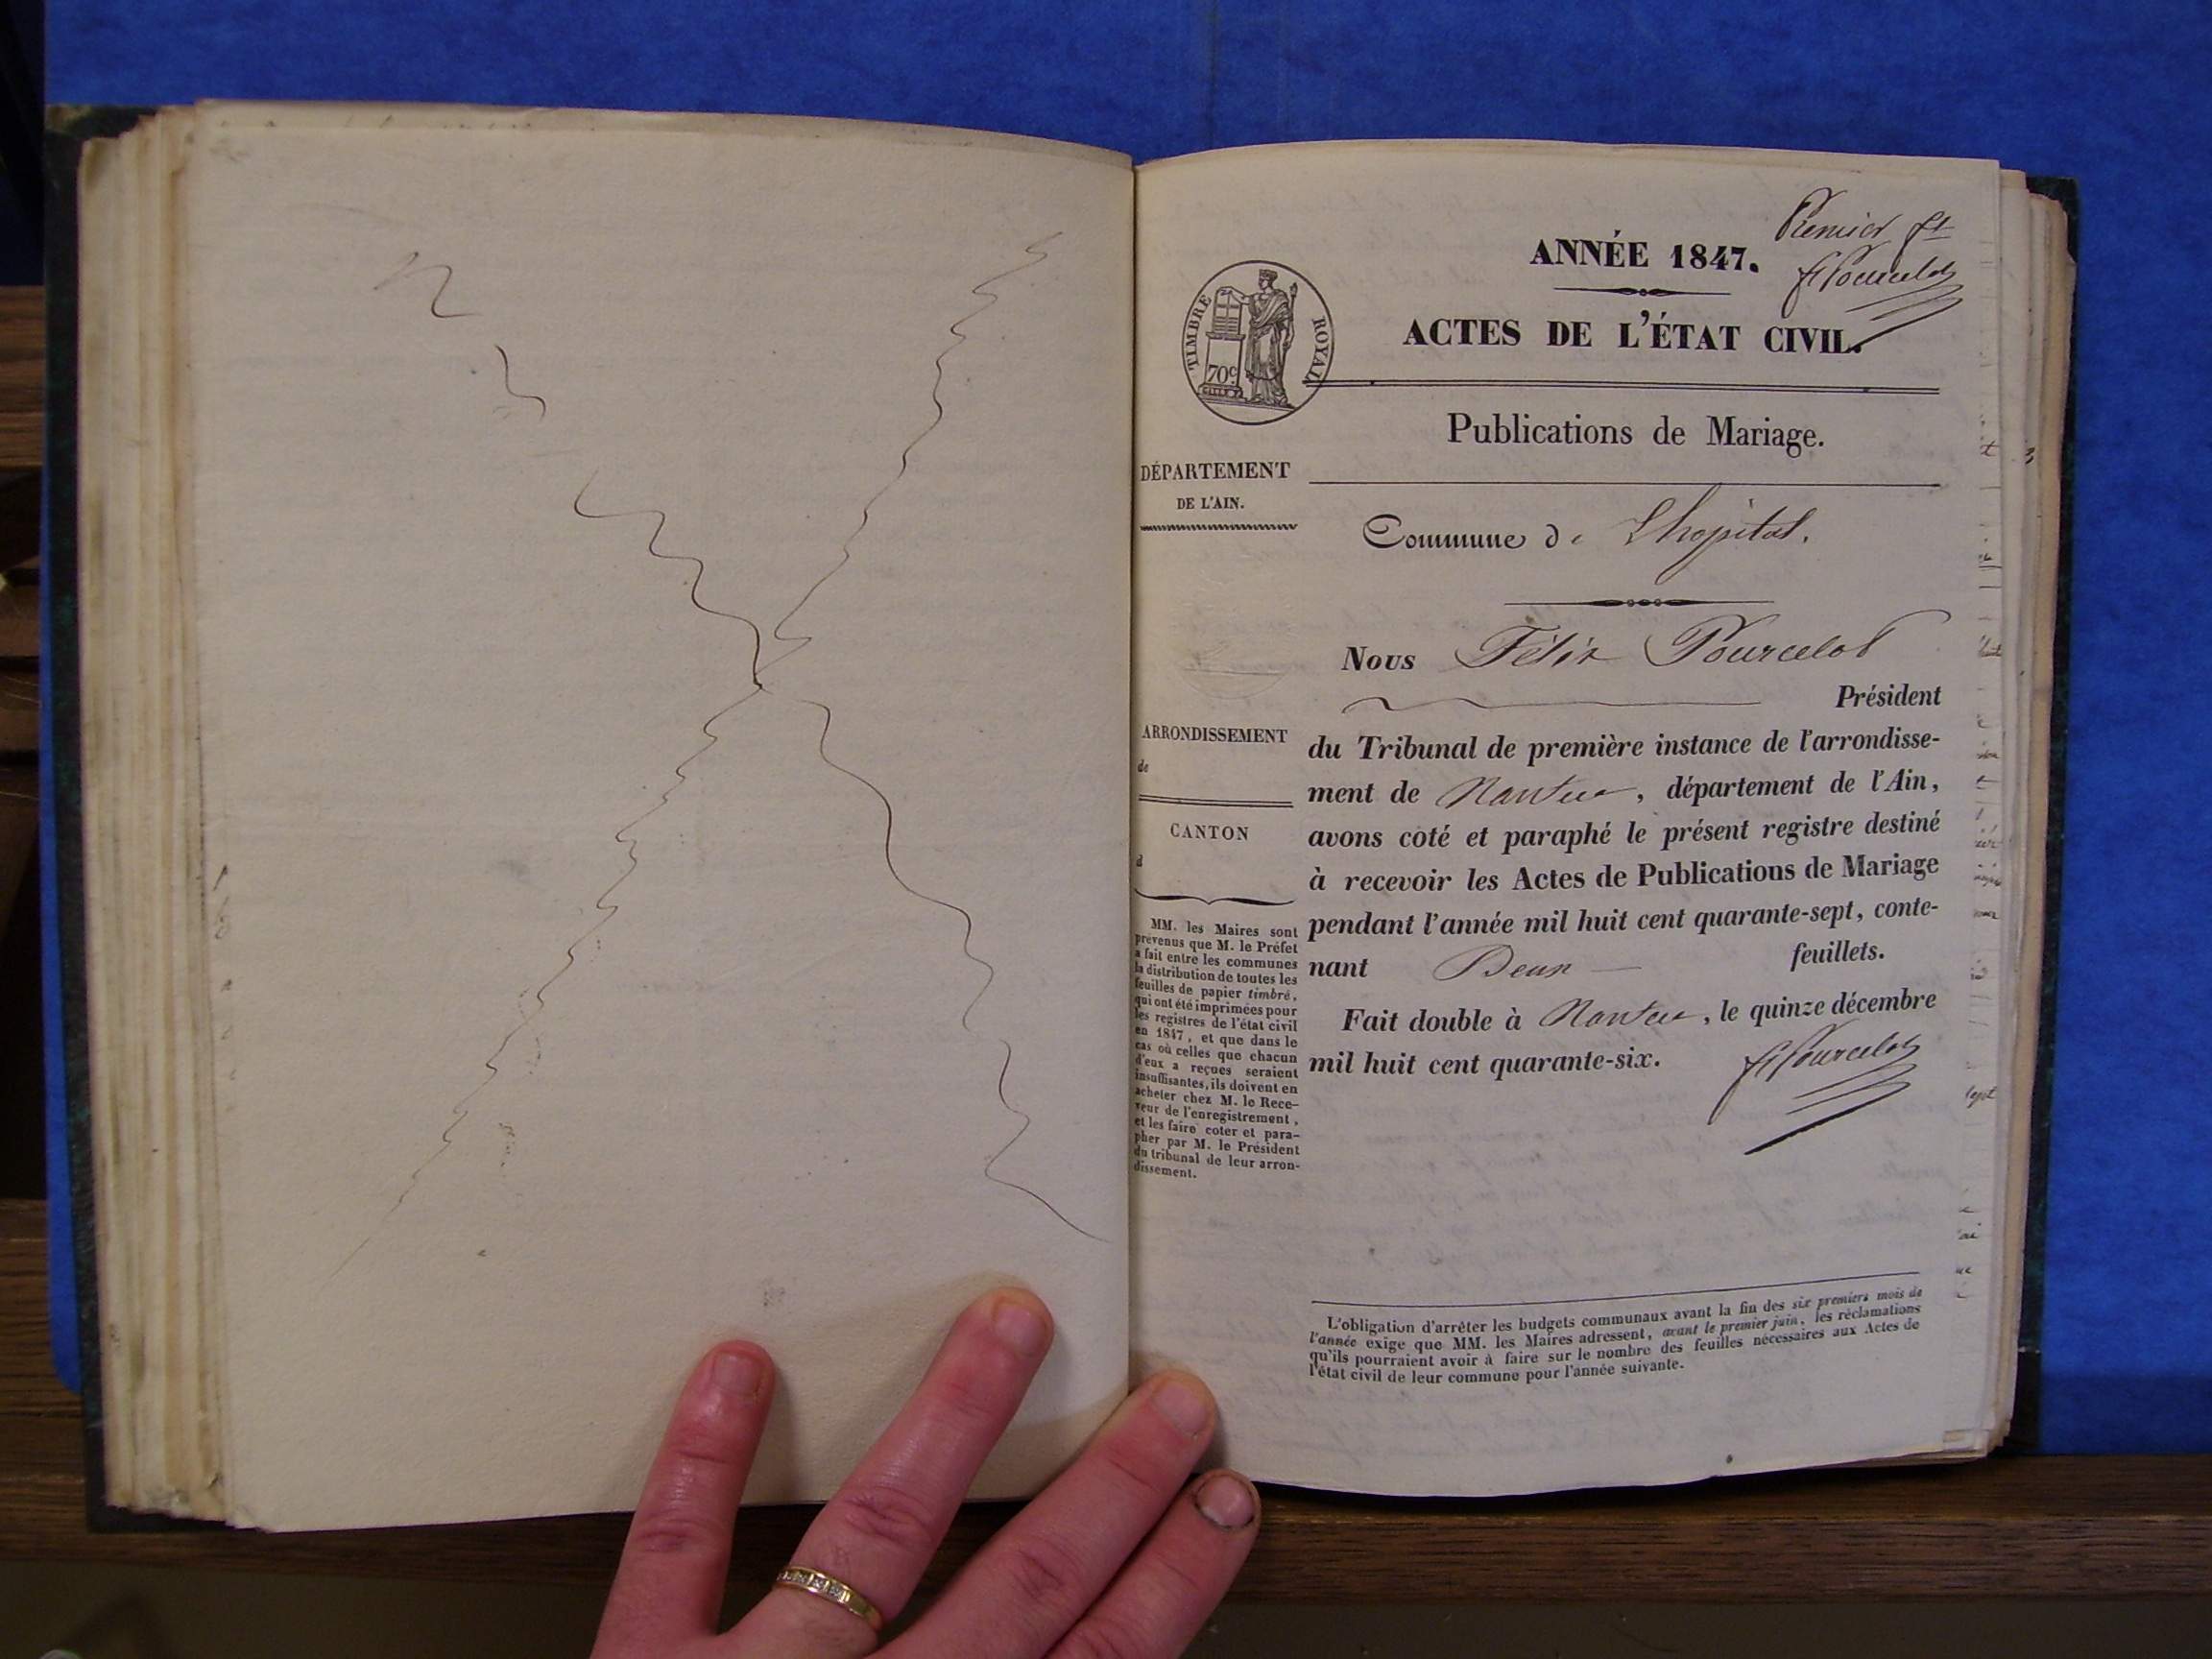 Premier ft
ANNÉE 1847.
FPourcelot
TIMBRE ROYAL
70c
ACTES DE L'ÉTAT CIVIL.
Publications de Mariage.
DÉPARTEMENT
DE L'AIN.
Commune de Lhopital.
Nous Félix Pourcelot
Président
du Tribunal de première instance de l'arrondisse-
ment de Nantua, département de l'Ain,
avons coté et paraphé le présent registre destiné
à recevoir les Actes de Publications de Mariage
pendant l'année mil huit cent quarante-sept, conte-
nant Deux feuillets.
Fait double à Nantua, le quinze décembre
mil huit cent quarante-six.
FPourcelot
ARRONDISSEMENT
de
CANTON
d
MM. les Maires sont
prévenus que M. le Préfet
a fait entre les communes
la distribution de toutes les
feuilles de papier timbré,
qui ont été imprimées pour
les registres de l'état civil
en 1847, et que dans le
cas où celles que chacun
d'eux a reçues seraient
insuffisantes, ils doivent en
acheter chez M. le Rece-
veur de l'enregistrement,
et les faire coter et para-
pher par M. le Président
du tribunal de leur arron-
dissement.
L'obligation d'arrêter les budgets communaux avant la fin des six premiers mois de
l'année exige que MM. les Maires adressent, avant le premier juin, les réclamations
qu'ils pourraient avoir à faire sur le nombre des feuilles nécessaires aux Actes de
l'état civil de leur commune pour l'année suivante.